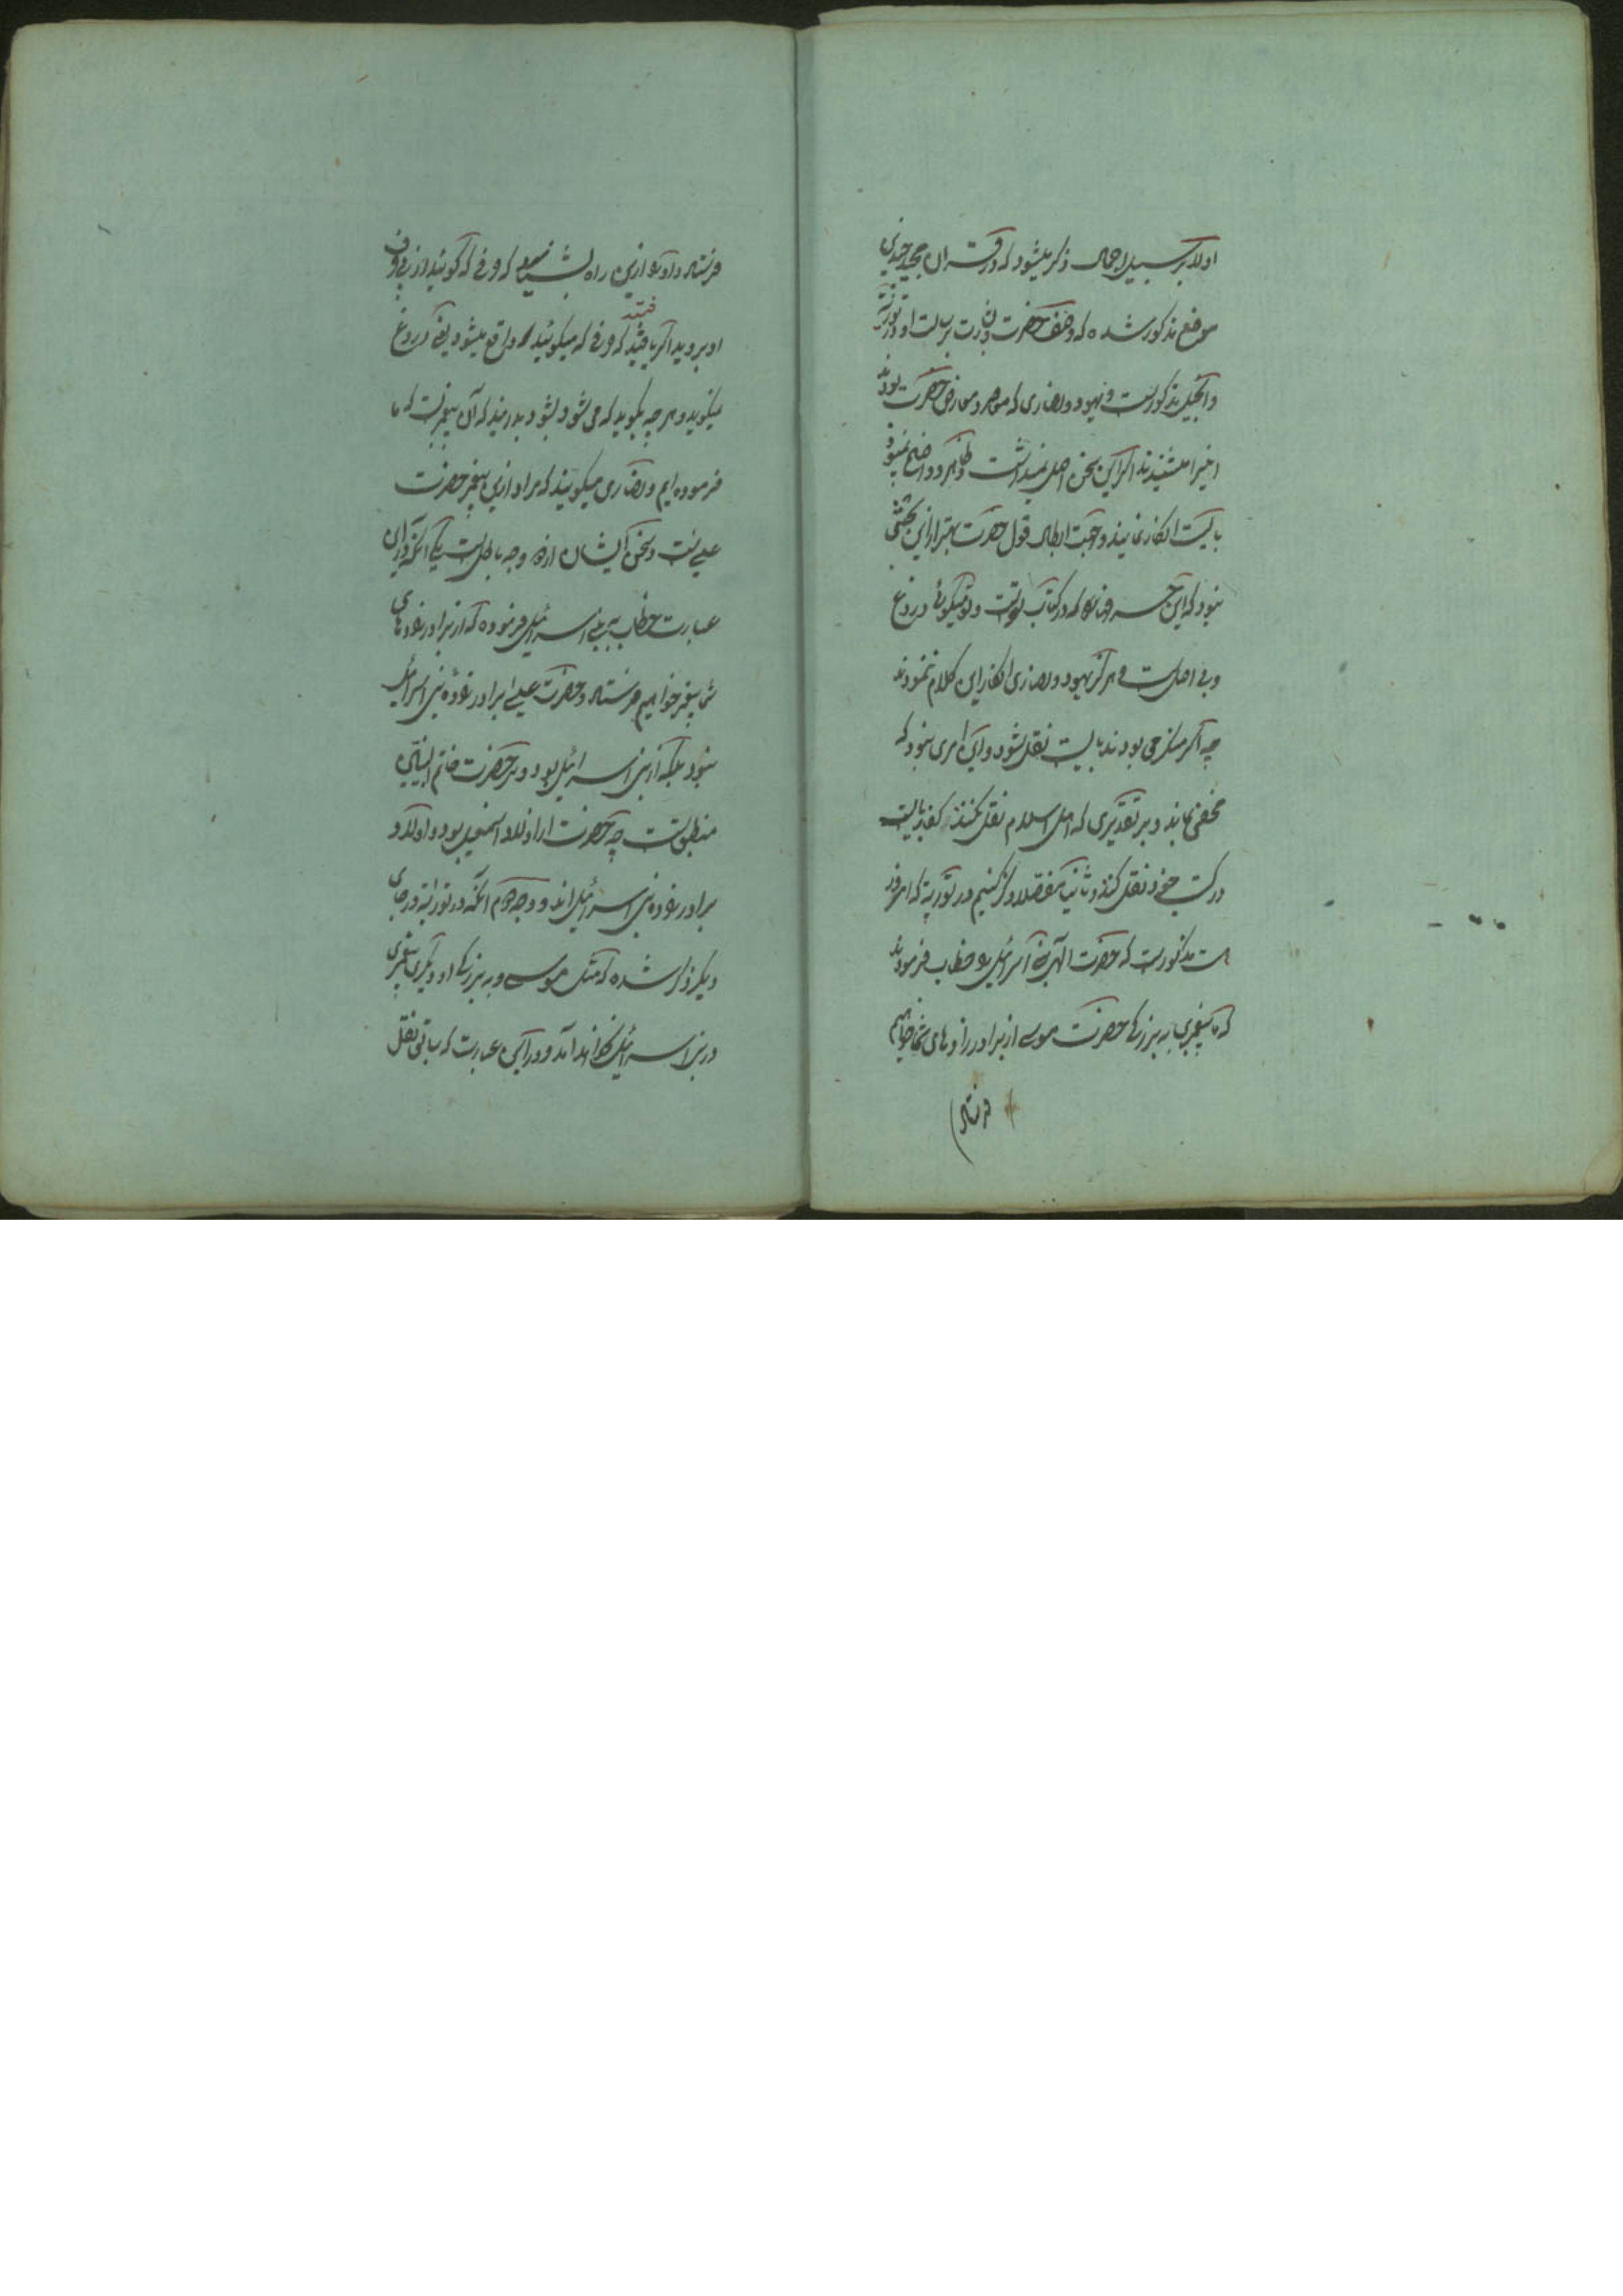 اولا بر سبیل اجمال ذکر میشود که در قران مجید چندین
موضع مذکور شده که وصف حضرت و بشارت برسالت او در توریة
و انجیل مذکورست و یهود و نصاری که معاصر و معارض حضرت بودند
اینرا میشنیدند اگر این سخن اصل نمیداشت ظاهر و واضح نمیبود
بایست انکار نمایند و جهت ابطال قول حضرت بهتر ازین بحثی
نبود که این چه که در کتاب ماست و تو میگوئی دروغ
و بی اصلست و هرگز یهود و نصاری انکار این کلام ننمودند
چه اگر منکر می بودند بایست نقل شود و این امری نبود که
مخفی بماند و بر تقدیری که اهل اسلام نقل نکنند کفار بایست
در کتب خود نقل کنند و ثانیا مفصلا ذکر کنیم در توریة که امروز
هست مذکورست که حضرت اله بنی اسرائیل را خطاب فرمودند
که پیغمبری به بزرگی حضرت موسی از برادرزاده های شما خواهیم
فرستاد
فرستاد و او ازین راه بشناسید که حرفی که گویند از پی حرف
او بروید اگر یافتید که حرفی که میگوئید واقع میشود یعنی دروغ
فتید
میگوید و هر چه بگوید که می شود بشود بدانید که آن پیغمبرست که ما
فرموده ایم و نصاری میگویند که مراد ازین پیغمبر حضرت
عیسی است و سخن ایشان از دو وجه باطلست یکی آنکه در این
عبارت خطاب به بنی اسرائیل فرموده که از برادرزادهای
شما پیغمبر خواهیم فرستاد و حضرت عیسی برادرزاده بنی اسرائیل
نبود بلکه از بنی اسرائیل بود و بر حضرت خاتم النبیین
منطبق است چه حضرت از اولاد اسمعیل بود و اولاد او
برادرزاده بنی اسرائیل اند و وجه دوم آنکه در توراته در جای
دیگر ذکر شده که مثل موسی و به بزرگی او دیگری پیغمبری
در بنی اسرائیل نخواهد آمد و در این عبارت که سابق نقل